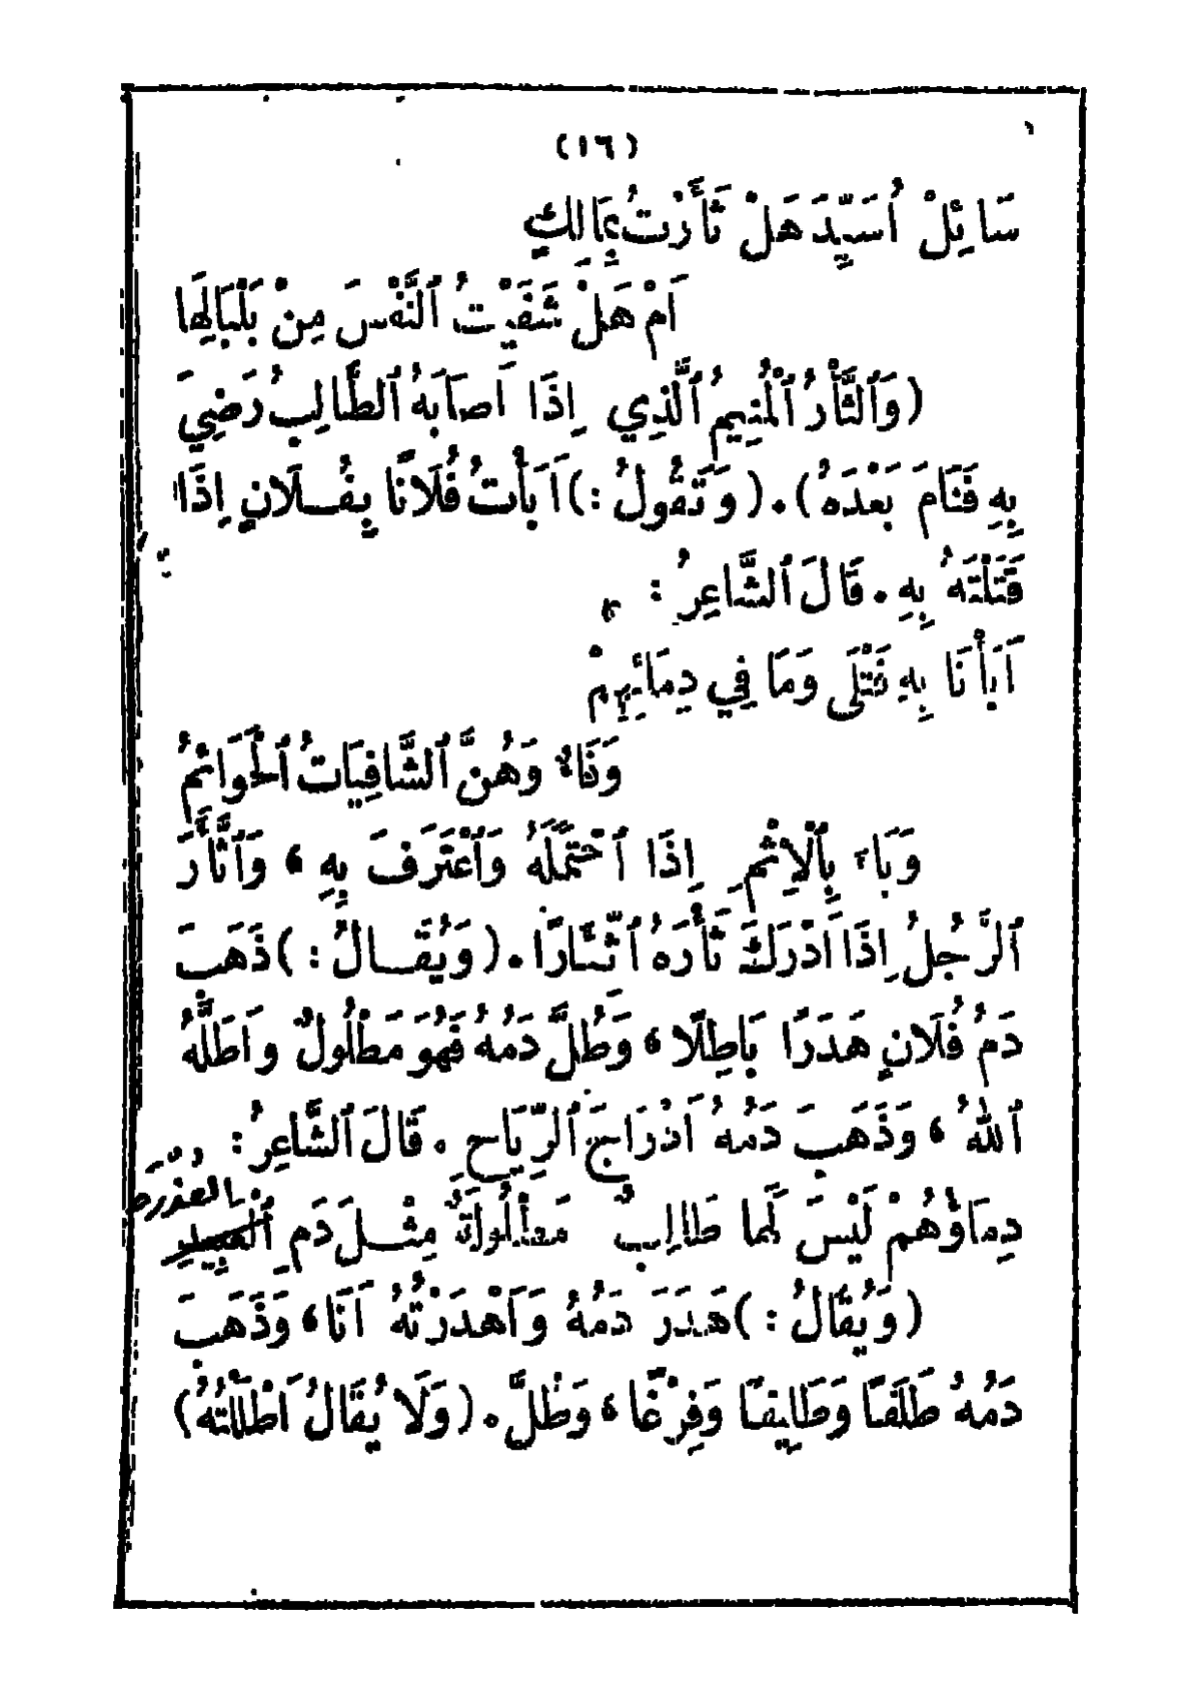 (١٦)
سَائِلْ أُسَيِّدَ هَلْ ثَأَرْتُ بِمَالِكٍ
اَمْ هَلْ شَفَيْتُ ٱلنَّفْسَ مِنْ بَلْبَالِهَا
(وَٱلثَّأْرُ ٱلْمُنِيمُ ٱلَّذِي إِذَا اَصَابَهُ ٱلطَّالِبُ رَضِيَ
بِهِ فَنَامَ بَعْدَهُ). (وَتَقُولُ:) اَبَأْتُ فُلَانًا بِفُلَانٍ إِذَا
قَتَلْتَهُ بِهِ. قَالَ ٱلشَّاعِرُ:
اَبَأْنَا بِهِ قَتْلَى وَمَا فِي دِمَائِهِمْ
وَفَاءٌ وَهُنَّ ٱلشَّافِيَاتُ ٱلْحَوَائِمُ
وَبَاءَ بِٱلْإِثْمِ إِذَا ٱحْتَمَلَهُ وَٱعْتَرَفَ بِهِ، وَٱثَّأَرَ
ٱلرَّجُلُ إِذَا اَدْرَكَ ثَأْرَهُ ٱثِّئَارًا. (وَيُقَالُ:) ذَهَبَ
دَمُ فُلَانٍ هَدَرًا بَاطِلًا، وَطُلَّ دَمُهُ فَهُوَ مَطْلُولٌ وَاَطَلَّهُ
ٱللهُ، وَذَهَبَ دَمُهُ اَدْرَاجَ ٱلرِّيَاحِ. قَالَ ٱلشَّاعِرُ:
دِمَاؤُهُمْ لَيْسَ لَهَا طَالِبٌ مَطْلُولَةٌ مِثْلَ دَمِ ٱلْعَبِيدِ
العذره
(وَيُقَالُ:) هَدَرَ دَمُهُ وَاَهْدَرْتُهُ اَنَا، وَذَهَبَ
دَمُهُ طَلَفًا وَطَلِيفًا وَفِرْغًا، وَطُلَّ. (وَلَا يُقَالُ اَطْلَلْتُهُ)